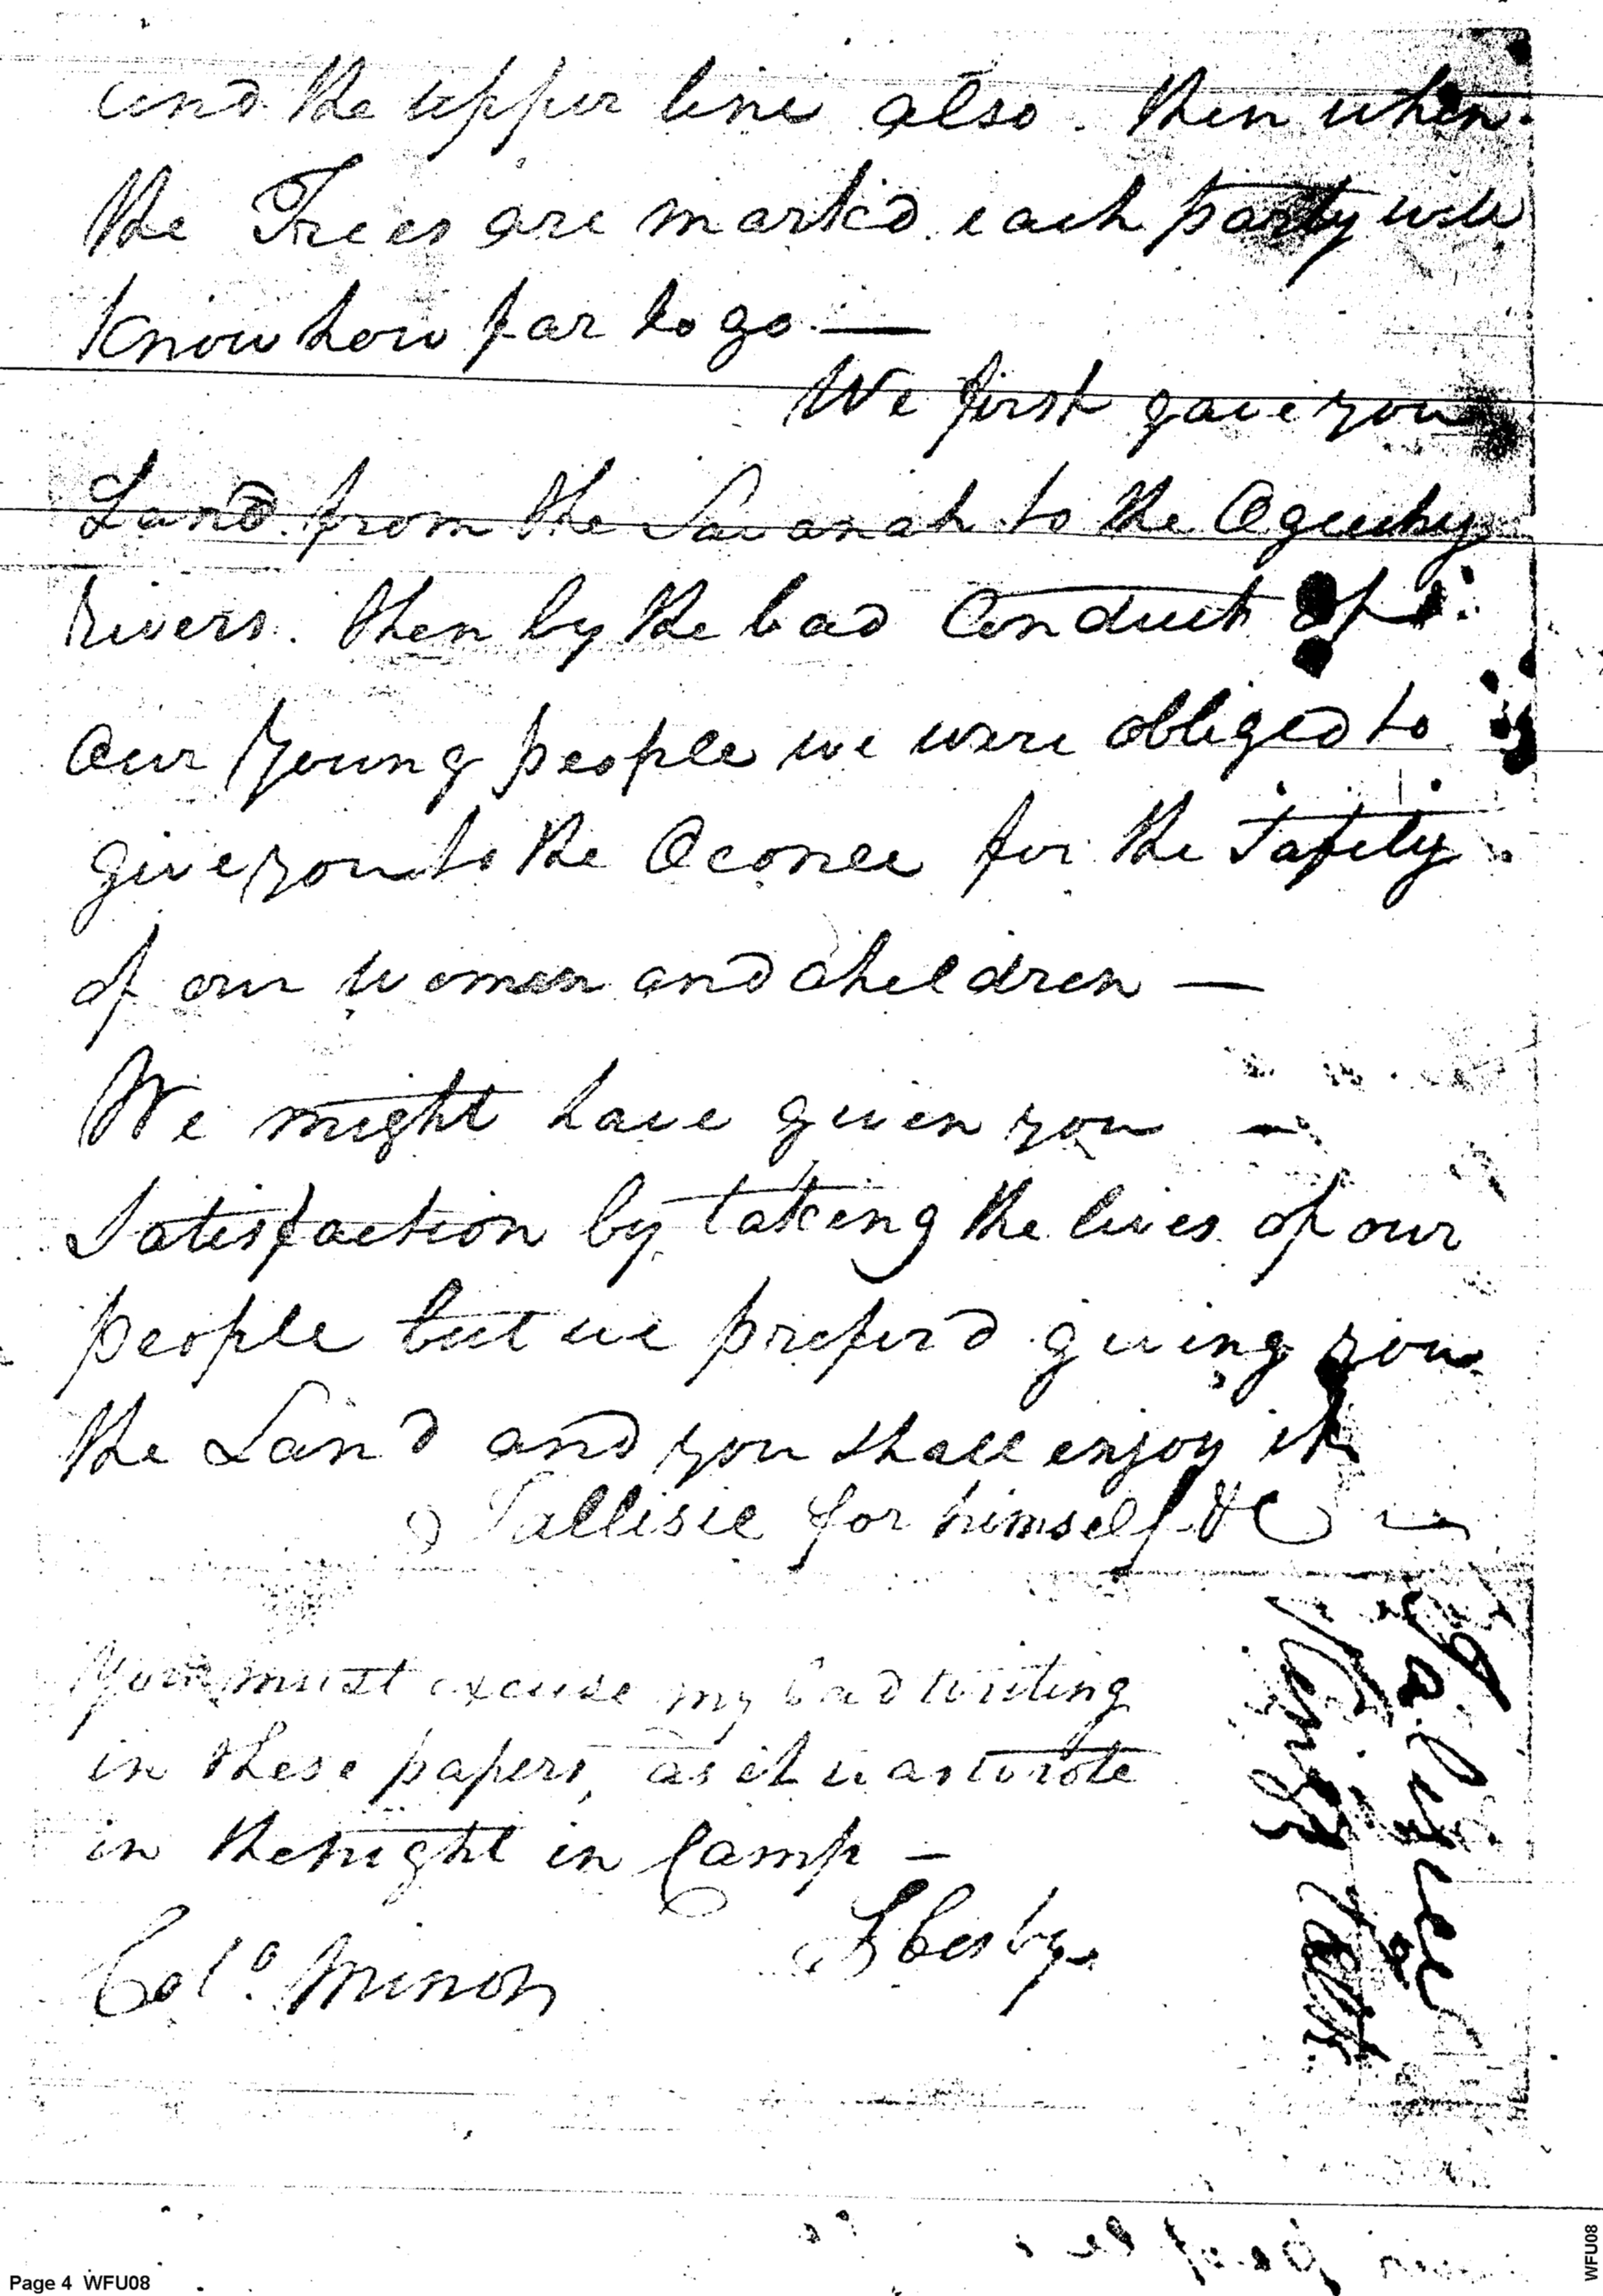 and the upper line also. then when
the Trees are mark'd each party will
know how far to go —
We first gave you
Land from the Savanah to the Oguchy
rivers. then by the bad Conduct of
Our young people we were obliged to
give you to the Oconee for the Safety
of our women and children —
We might have given you —
Satisfaction by taking the lives of our
people but we prefer'd giving you
the Land and you shall enjoy it
Tallisie for himself &C
You must excuse my bad writing
in these papers, as it was wrote
in the night in Camp —
Colo. Minor
Page 4 WFU08
WFU08